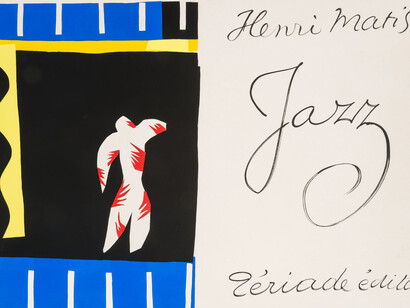 Henri Matis
Jazz
Tériade édite